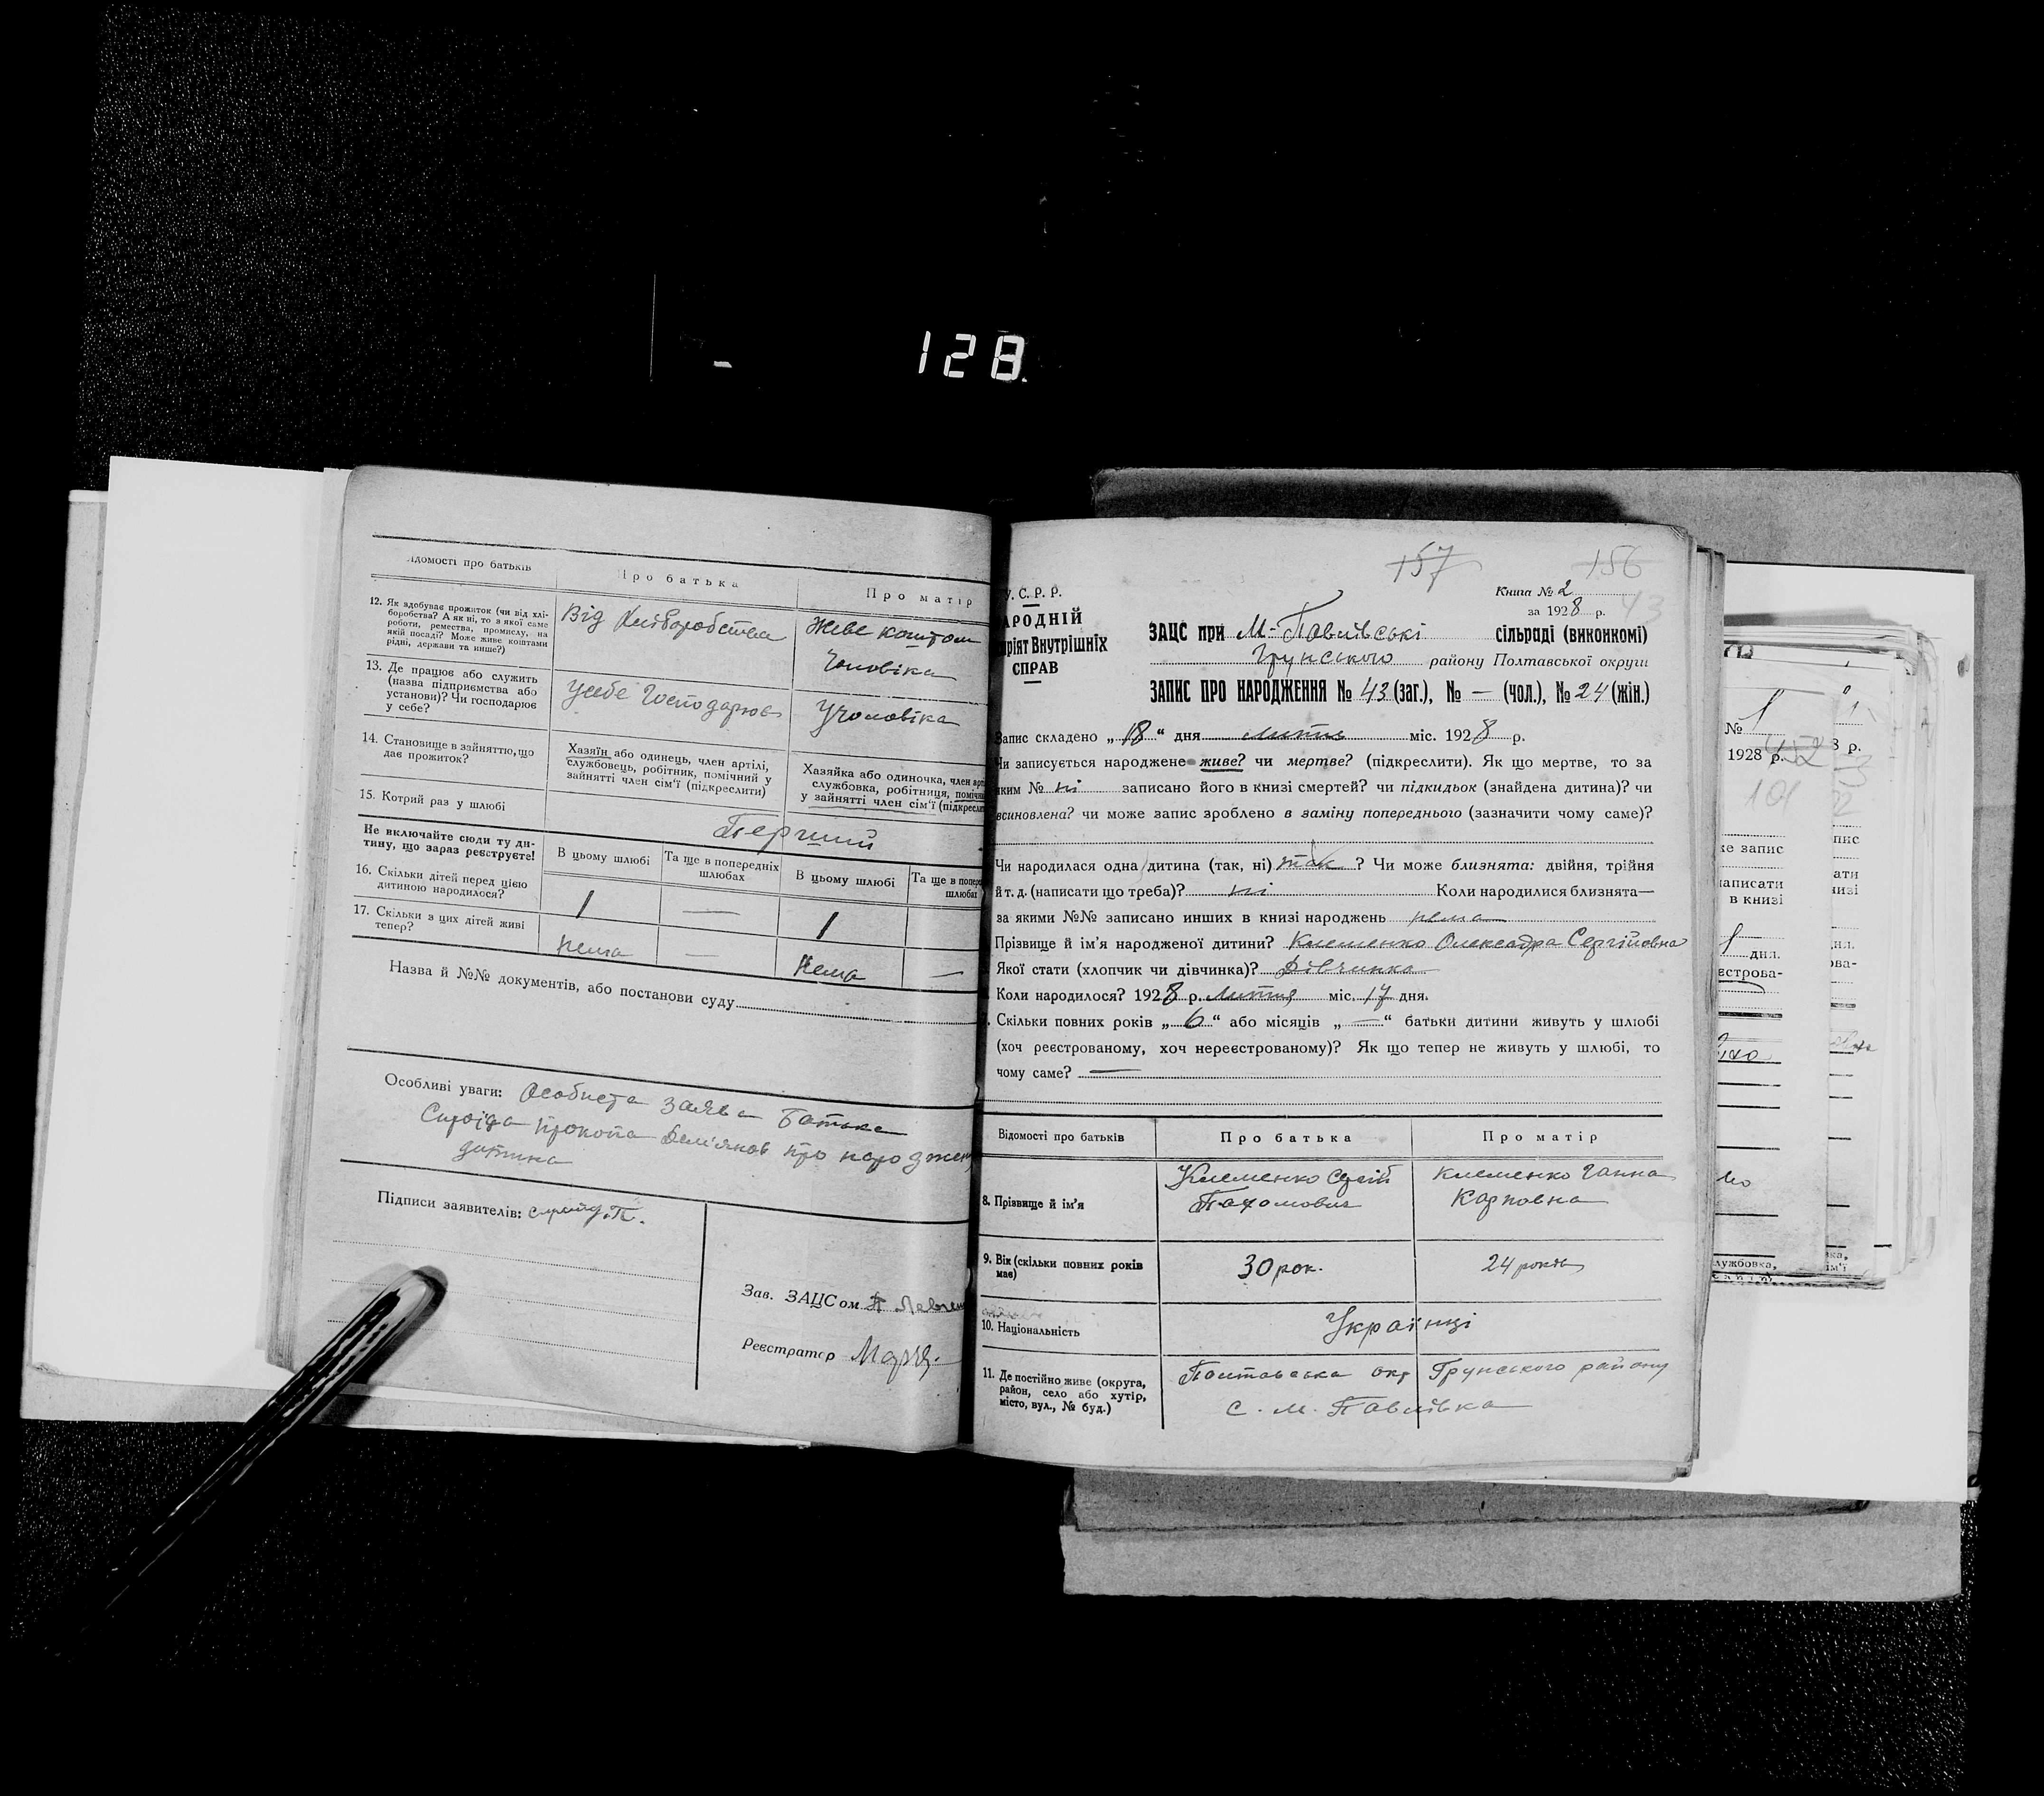 128.
Відомості про батьків
Про батька
Про матір
12. Як здобуває прожиток (чи від хлі-
боробства? А як ні, то з якої саме
роботи, ремества, промислу, на
якій посаді? Може живе коштами
рідні, держави та инше?)
Від Хліборобства
Живе коштом
Чоловіка
13. Де працює або служить
(назва підприємства або
установи)? Чи господарює
у себе?
у себе Господарює
У чоловіка
14. Становище в зайняттю, що
дає прожиток?
Хазяїн або одинець, член артілі,
службовець, робітник, помічний у
зайнятті член сім'ї (підкреслити)
Хазяйка або одиночка, член арті
службовка, робітниця, помічна
у зайнятті член сім'ї (підкресли
15. Котрий раз у шлюбі
Перший
Не включайте сюди ту ди-
тину, що зараз реєструєте!
В цьому шлюбі
Та ще в попередніх
шлюбах
В цьому шлюбі
Та ще в попере
шлюбах
16. Скільки дітей перед цією
дитиною народилося?
1 — 1
17. Скільки з цих дітей живі
тепер?
Нема — Нема —
Назва й №№ документів, або постанови суду
Особливі уваги: Особиста заява батька
Прокопа Дем'янов про народжен
дитина
Підписи заявителів:
Зав. ЗАЦСом
Реєстратор
157 156
У. С. Р. Р.
АРОДНІЙ
ріят Внутрішніх
СПРАВ
Книга № 2
за 1928 р.
43
ЗАЦС при М-Павлівські сільраді (виконкомі)
Грунського району Полтавської округи
ЗАПИС ПРО НАРОДЖЕННЯ № 43 (заг.), № — (чол.), № 24 (жін.)
Запис складено „18“ дня міс. 1928 р.
Чи записується народжене живе? чи мертве? (підкреслити). Як що мертве, то за
яким № ні записано його в книзі смертей? чи підкидьок (знайдена дитина)? чи
всиновлена? чи може запис зроблено в заміну попереднього (зазначити чому саме)?
Чи народилася одна дитина (так, ні) так ? Чи може близнята: двійня, трійня
й т. д. (написати що треба)? ні Коли народилися близнята—
за якими №№ записано инших в книзі народжень нема
Прізвище й ім'я народженої дитини? Клеменко Олександра Сергійовна
Якої стати (хлопчик чи дівчинка)? Дівчинка
Коли народилося? 1928 р. Лютня міс. 17 дня.
Скільки повних років „6“ або місяців „—“ батьки дитини живуть у шлюбі
(хоч реєстрованому, хоч нереєстрованому)? Як що тепер не живуть у шлюбі, то
чому саме? —
Відомості про батьків
Про батька
Про матір
8. Прізвище й ім'я
Клеменко Сергій
Пахомович
Клеменко Ганна
Карповна
9. Вік (скільки повних років
має)
30 рок.
24 років
10. Національність
Українці
11. Де постійно живе (округа,
район, село або хутір,
місто, вул., № буд.)
Полтавська окр Грунського району
с. М. Павлівка
№ 1
1928 р.
101
3 р.
же запис
написати
в книзі
дня.
єстрова-
лужбовка,